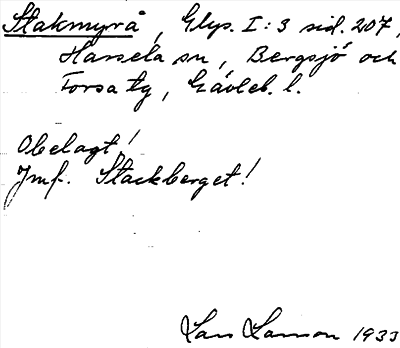 Stakmyrå, Glys. I:3 sid. 207,
Harsela sn, Bergsjö och
Forsa tg, Gävleb. l.
Obelagt!
Jmf. Stackberget!
Lars Larsson 1933